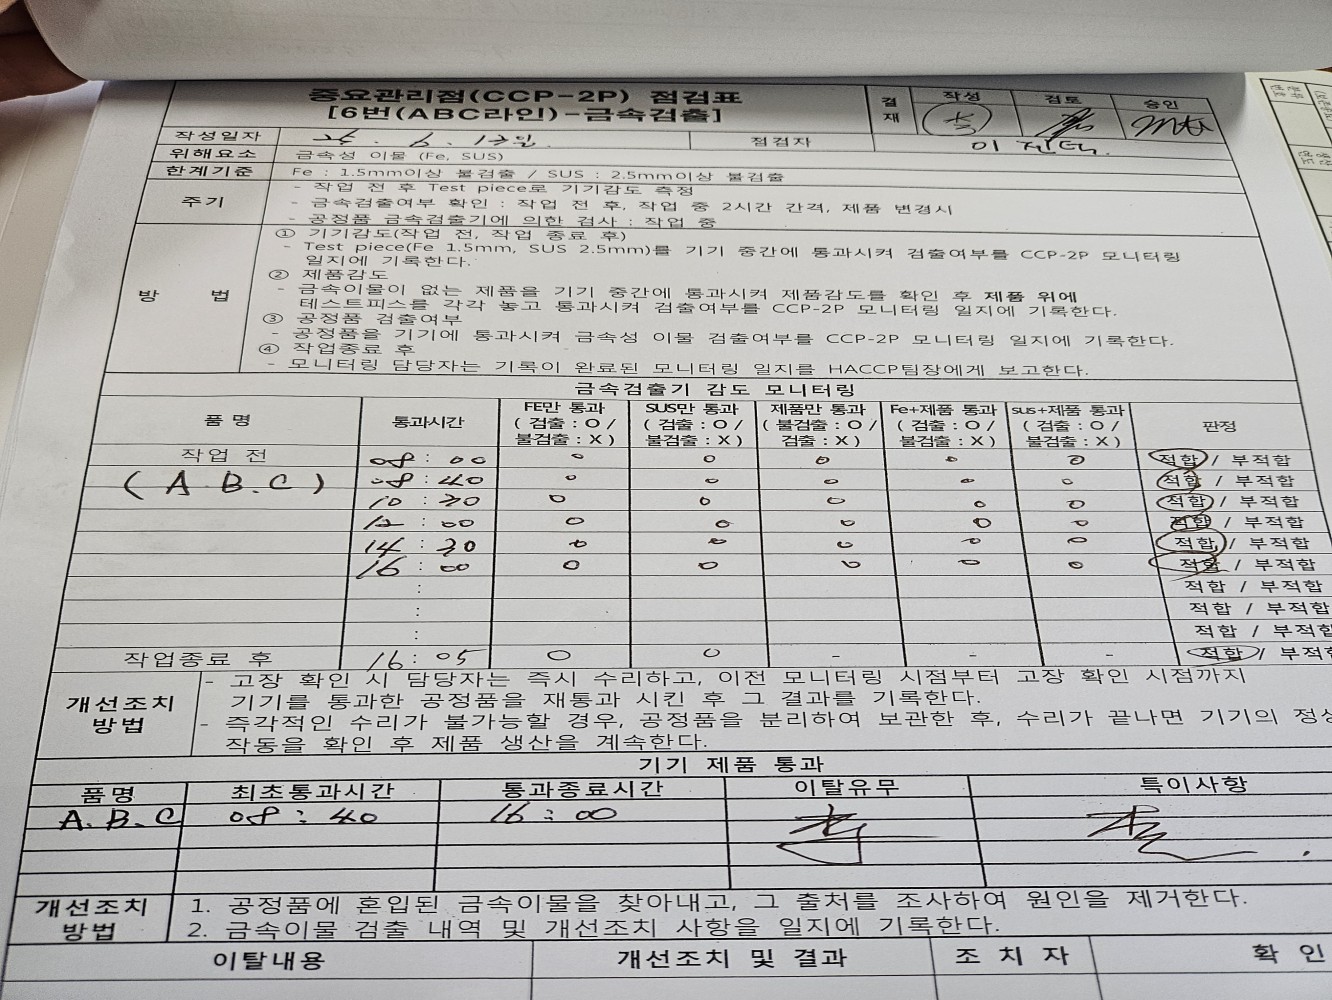 중요관리점(CCP-2P) 점검표
[6번(ABC라인)-금속검출]
결재 작성 검토 승인
작성일자 6. 17일 점검자 이
위해요소 금속성 이물 (Fe, SUS)
한계기준 Fe : 1.5mm이상 불검출 / SUS : 2.5mm이상 불검출
주기
- 작업 전 후 Test piece로 기기감도 측정
- 금속검출여부 확인 : 작업 전 후, 작업 중 2시간 간격, 제품 변경시
- 공정품 금속검출기에 의한 검사 : 작업 중
방 법
① 기기감도(작업 전, 작업 종료 후)
- Test piece(Fe 1.5mm, SUS 2.5mm)를 기기 중간에 통과시켜 검출여부를 CCP-2P 모니터링
일지에 기록한다.
② 제품감도
- 금속이물이 없는 제품을 기기 중간에 통과시켜 제품감도를 확인 후 제품 위에
테스트피스를 각각 놓고 통과시켜 검출여부를 CCP-2P 모니터링 일지에 기록한다.
③ 공정품 검출여부
- 공정품을 기기에 통과시켜 금속성 이물 검출여부를 CCP-2P 모니터링 일지에 기록한다.
④ 작업종료 후
- 모니터링 담당자는 기록이 완료된 모니터링 일지를 HACCP팀장에게 보고한다.
금속검출기 감도 모니터링
품 명 통과시간 FE만 통과 (검출 : O / 불검출 : X) SUS만 통과 (검출 : O / 불검출 : X) 제품만 통과 (불검출 : O / 검출 : X) Fe+제품 통과 (검출 : O / 불검출 : X) sus+제품 통과 (검출 : O / 불검출 : X) 판정
작업 전 08 : 00 O O O O O 적합 / 부적합
(A B.C) 08 : 40 O O O O O 적합 / 부적합
10 : 20 O O O O O 적합 / 부적합
12 : 00 O O O O O 적합 / 부적합
14 : 20 O O O O O 적합 / 부적합
16 : 00 O O O O O 적합 / 부적합
: 적합 / 부적합
: 적합 / 부적합
: 적합 / 부적합
작업종료 후 16 : 05 O O - - - 적합 / 부적
개선조치 방법
- 고장 확인 시 담당자는 즉시 수리하고, 이전 모니터링 시점부터 고장 확인 시점까지
기기를 통과한 공정품을 재통과 시킨 후 그 결과를 기록한다.
- 즉각적인 수리가 불가능할 경우, 공정품을 분리하여 보관한 후, 수리가 끝나면 기기의 정상
작동을 확인 후 제품 생산을 계속한다.
기기 제품 통과
품명 최초통과시간 통과종료시간 이탈유무 특이사항
A.B.C 08 : 40 16 : 00
개선조치 방법
1. 공정품에 혼입된 금속이물을 찾아내고, 그 출처를 조사하여 원인을 제거한다.
2. 금속이물 검출 내역 및 개선조치 사항을 일지에 기록한다.
이탈내용 개선조치 및 결과 조 치 자 확 인